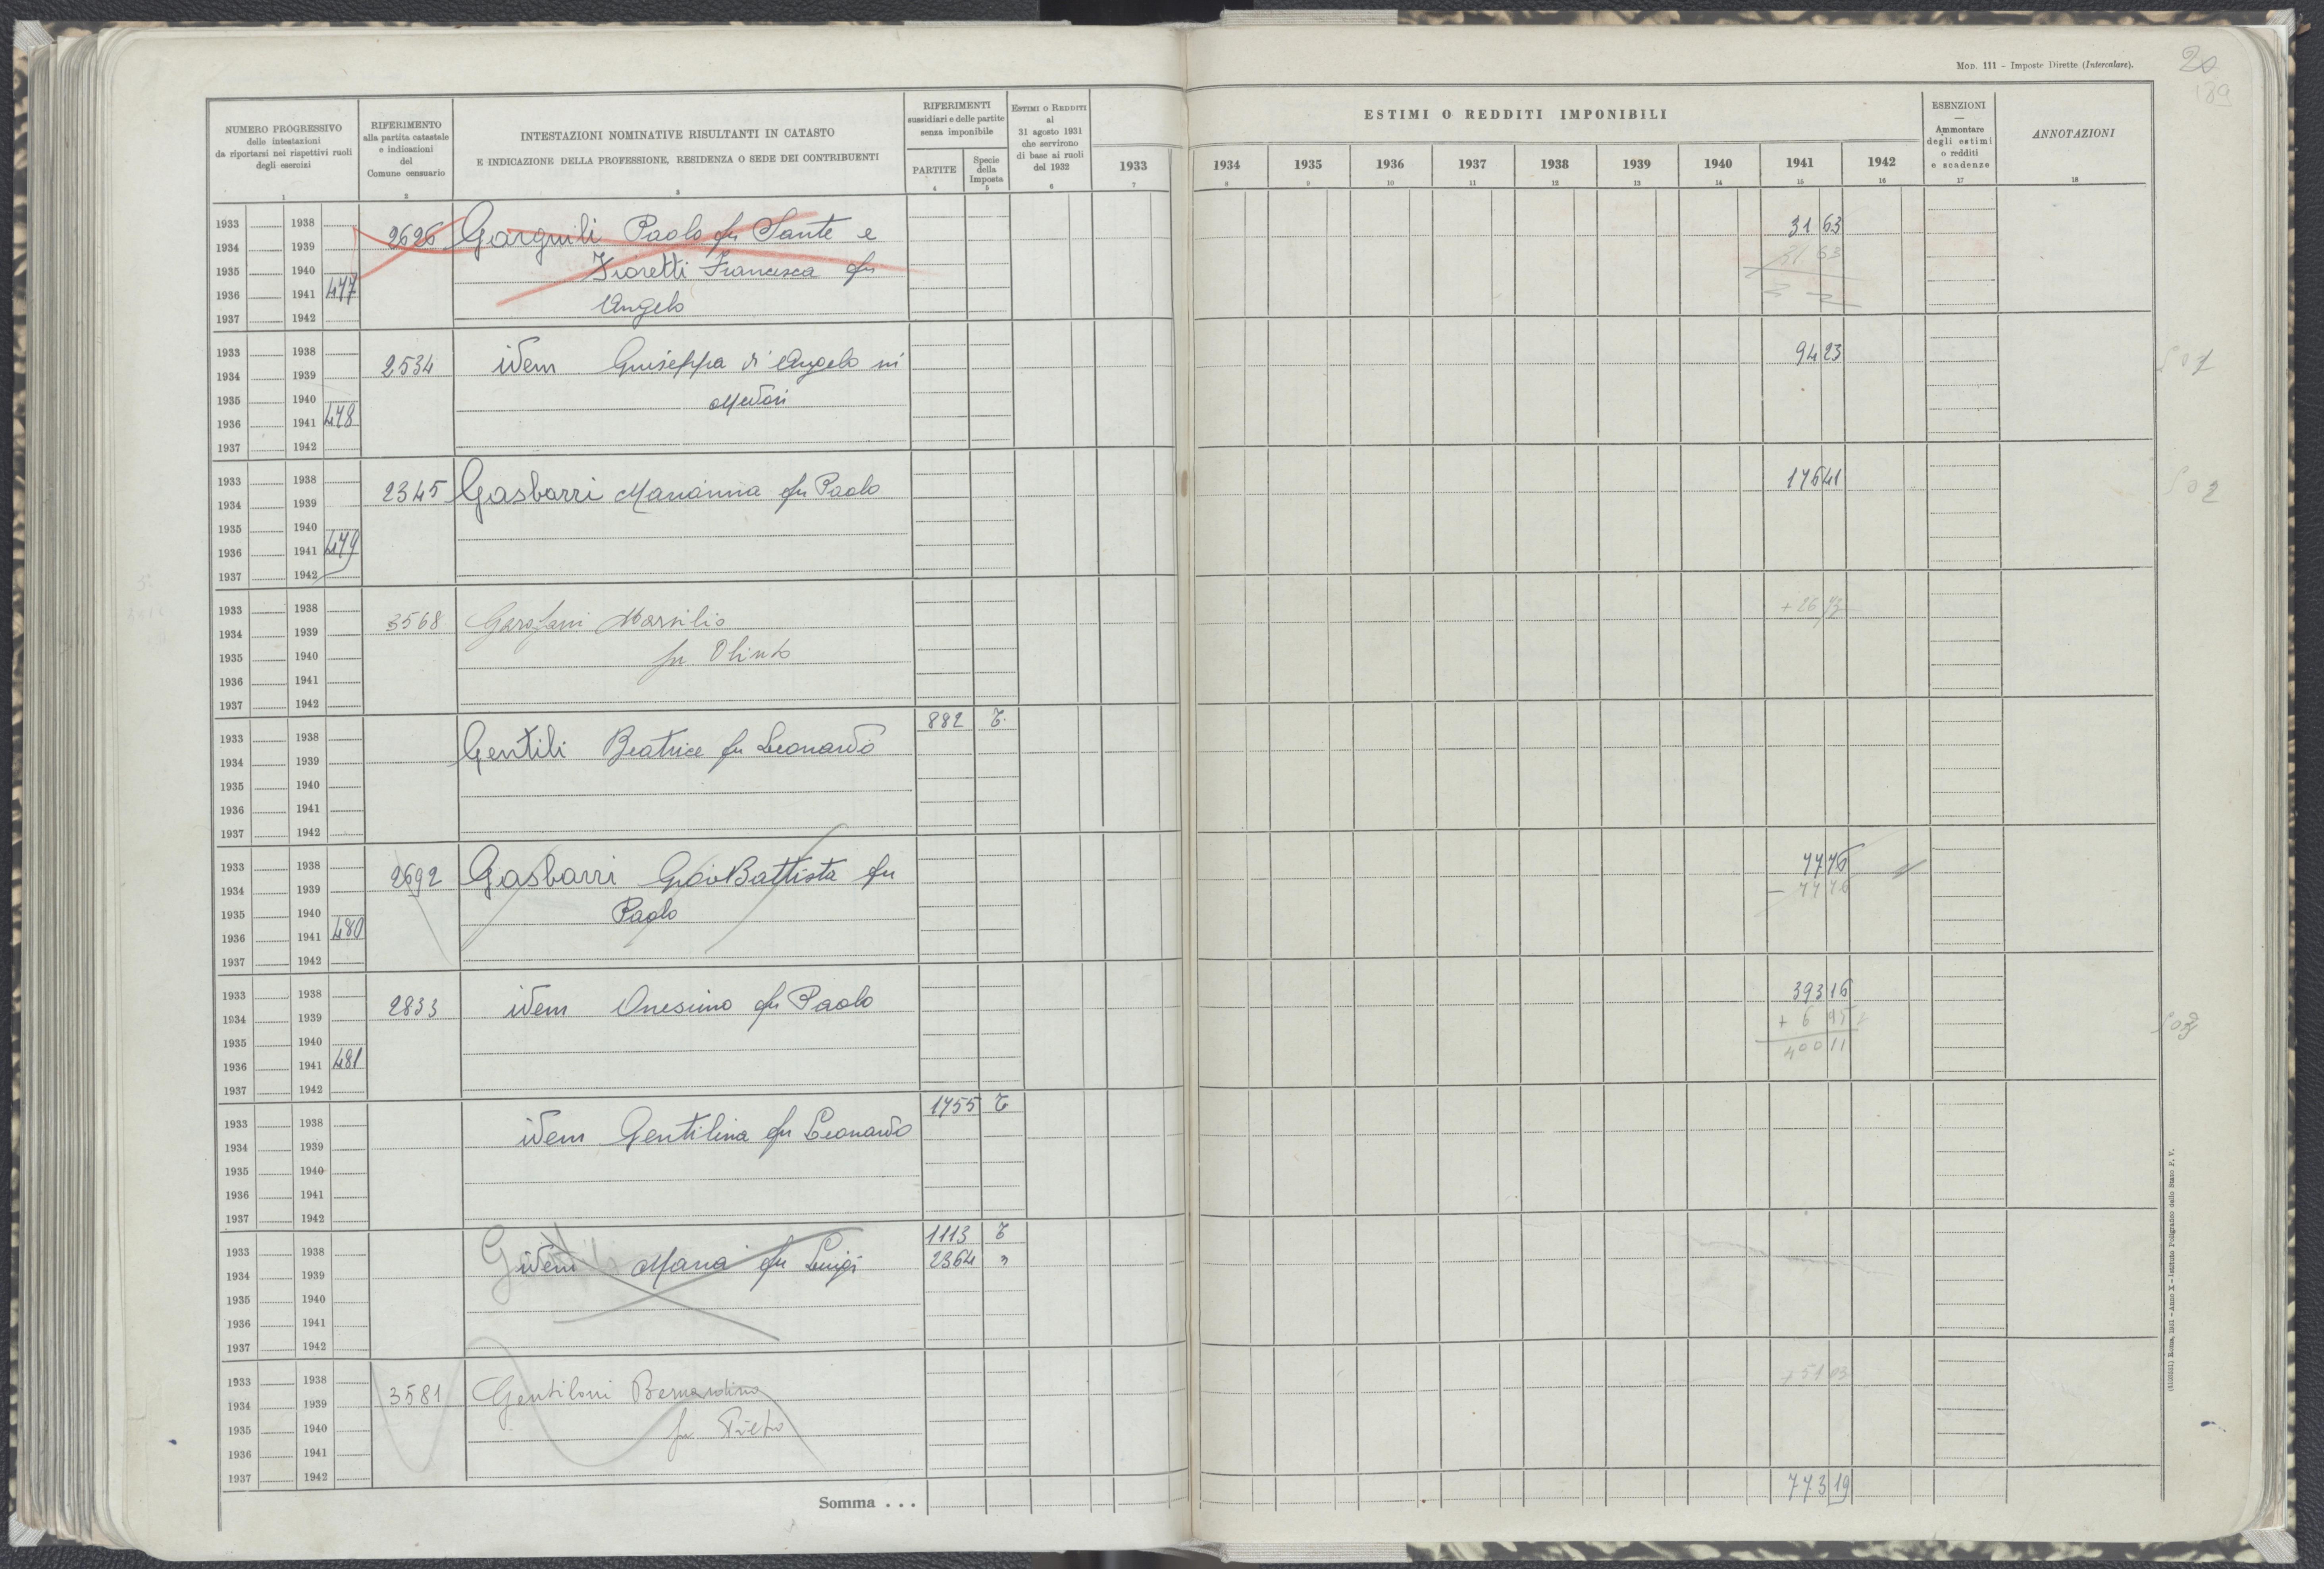 MOD. 111 - Imposte Dirette (Intercalare).
20
189
NUMERO PROGRESSIVO
delle intestazioni
da riportarsi nei rispettivi ruoli
degli esercizi
RIFERIMENTO
alla partita catastale
e indicazioni
del
Comune censuario
INTESTAZIONI NOMINATIVE RISULTANTI IN CATASTO
E INDICAZIONE DELLA PROFESSIONE, RESIDENZA O SEDE DEI CONTRIBUENTI
RIFERIMENTI
sussidiari e delle partite
senza imponibile
PARTITE
Specie
della
Imposta
ESTIMI O REDDITI
al
31 agosto 1931
che servirono
di base ai ruoli
del 1932
ESTIMI O REDDITI IMPONIBILI
1933 1934 1935 1936 1937 1938 1939 1940 1941 1942
ESENZIONI
—
Ammontare
degli estimi
o redditi
e scadenze
ANNOTAZIONI
1 2 3 4 5 6 7 8 9 10 11 12 13 14 15 16 17 18
1933 1938 2626 Gargiuli Paolo fu Sante e 31 63
1934 1939 31 63
1935 1940 Fioretti Francesca fu
1936 1941 477
1937 1942 Angelo
1933 1938 2534 idem Giuseppa di Angelo in 94 23 501
1934 1939
1935 1940
1936 1941 478
1937 1942
1933 1938 2345 Gasbarri Marianna fu Paolo 176 41 502
1934 1939
1935 1940
1936 1941 479
1937 1942
1933 1938 3568 Garofani Marsilio
1934 1939
1935 1940 fu Olinto
1936 1941
1937 1942
882 T.
1933 1938 Gentili Beatrice fu Leonardo
1934 1939
1935 1940
1936 1941
1937 1942
1933 1938 2692 Gasbarri Gio Battista fu 77 76
1934 1939 - 77 76
1935 1940 Paolo
1936 1941 480
1937 1942
1933 1938 2833 idem Onesimo fu Paolo 393 16
1934 1939 + 6 95 503
1935 1940 400 11
1936 1941 481
1937 1942
1755 T
1933 1938 idem Gentilina fu Leonardo
1934 1939
1935 1940
1936 1941
1937 1942
1113 T
1933 1938 idem Maria fu Luigi 2364 "
1934 1939
1935 1940
1936 1941
1937 1942
1933 1938 3581 Gentiloni Bernardino + 51 03
1934 1939
1935 1940 fu
1936 1941
1937 1942
Somma . . . 773 19
Roma, 1931 - Anno X - Istituto Poligrafico dello Stato P. V.